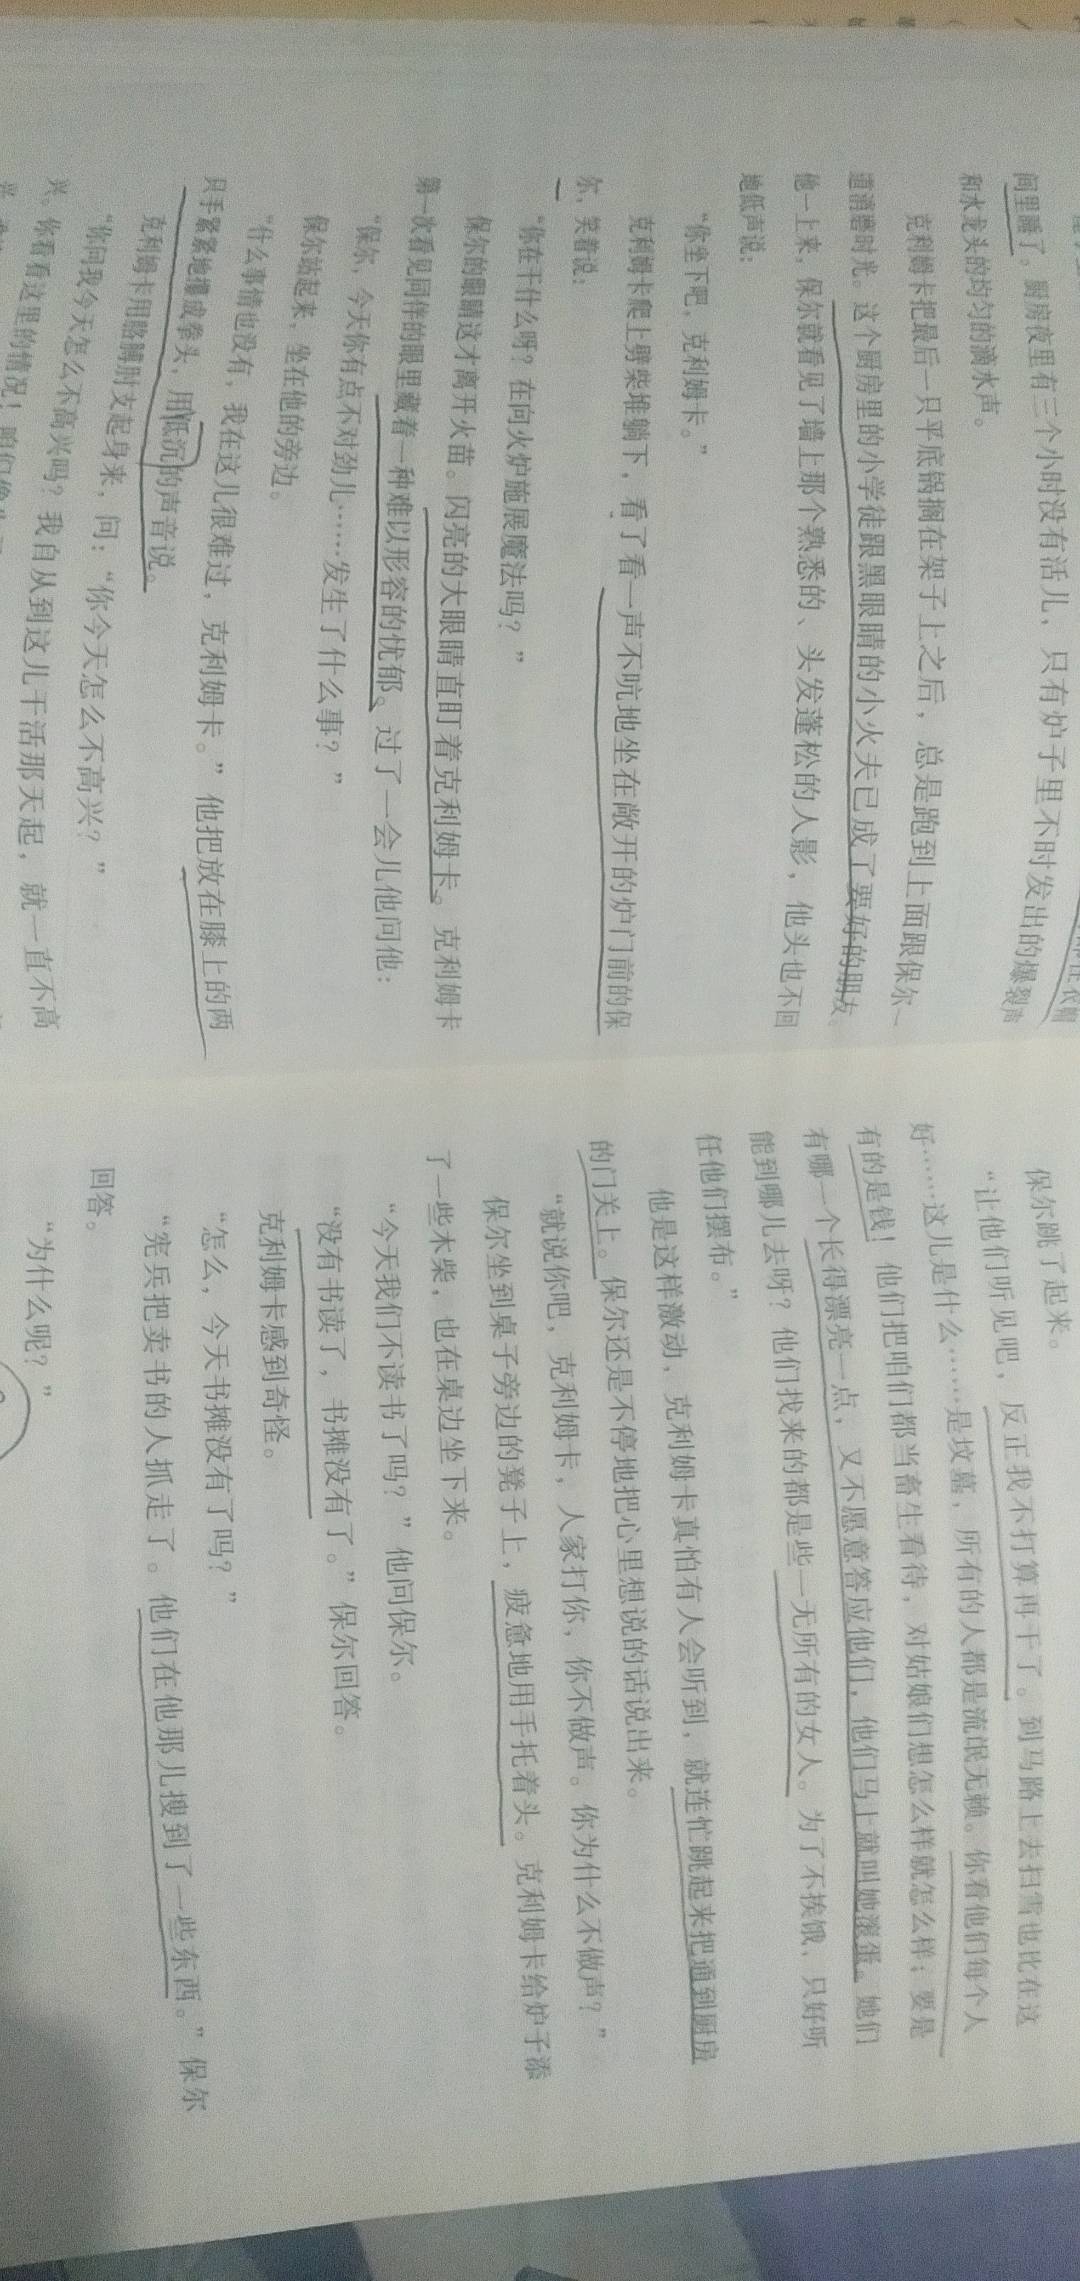 间里睡了。厨房夜里有三个小时没有活儿，只有炉子里不时发出的爆裂声
和水龙头的均匀的滴水声。
克利姆卡把最后一只平底锅搁在架子上之后，总是跑到上面跟保尔一
道消磨时光。这个厨房里的小学徒跟黑眼睛的小火夫已成了要好的朋友。
他一上来，保尔就看见了墙上那个熟悉的、头发蓬松的人影，他头也不回
地低声说：
“你坐下吧，克利姆卡。”
克利姆卡爬上劈柴堆躺下，看了看一声不吭地坐在敞开的炉门前的保
尔，笑着说：
“你在干什么呀？在向火炉施展魔法吗？”
保尔的眼睛这才离开火苗。闪亮的大眼睛直盯着克利姆卡。克利姆卡
第一次看见同伴的眼里藏着一种难以形容的忧郁。过了一会儿他问他：
“保尔，今天你有点不对劲儿……发生了什么事？”
保尔站起来，坐在他的旁边。
“什么事情也没有，我在这儿很难过，克利姆卡。”他把放在膝上的两
只手紧紧地攥成拳头，用低沉的声音说。
克利姆卡用胳膊肘支起身来，问：“你今天怎么不高兴？”
“你问我今天怎么不高兴吗？我自从到这儿干活那天起，就一直不高
兴。你看看这里的情况！
保尔跳了起来。
“让他们听见吧，反正我不打算再干了。到马路上去扫雪也比在这
好……这儿是什么……是坟墓，所有的人都是流氓无赖。你看他们每个人
有的是钱！他们把咱们都当畜生看待，对姑娘们想怎么样就怎么样；要是
有哪一个长得漂亮一点，又不愿意答应他们，他们马上就叫她滚蛋。她们
能到哪儿去呀？他们找来的都是些一无所有的女人。为了不挨饿，只好听
任他们摆布。”
他是这样激动，克利姆卡真怕有人会听到，就连忙跳起来把通到厨房
的门关上。保尔还是不停地把心里想说的话说出来。
“就说你吧，克利姆卡，人家打你，你不做声。你为什么不做声？”
保尔坐到桌子旁边的凳子上，疲惫地用手托着头。克利姆卡给炉子添
了一些木柴，也在桌边坐下来。
“今天我们不读书了吗？”他问保尔。
“没有书读了，书摊没有了。”保尔回答。
克利姆卡感到奇怪。
“怎么，今天书摊没有了吗？”
“宪兵把卖书的人抓走了。他们在他那儿搜到了一些东西。”保尔
回答。
“为什么呢？”